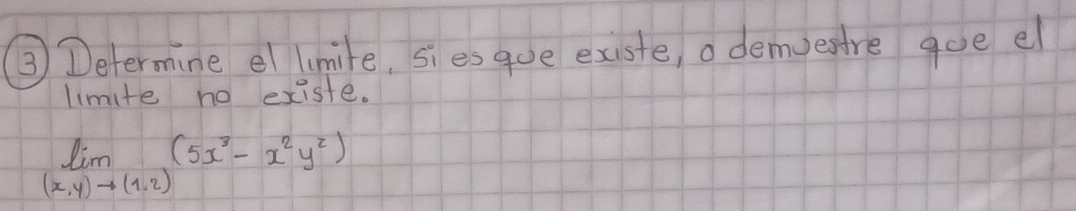 ③ Determine el limite, si es que existe, o demuestre que el
limite no existe.
lim (5x³ - x²y²)
(x,y)→(1,2)